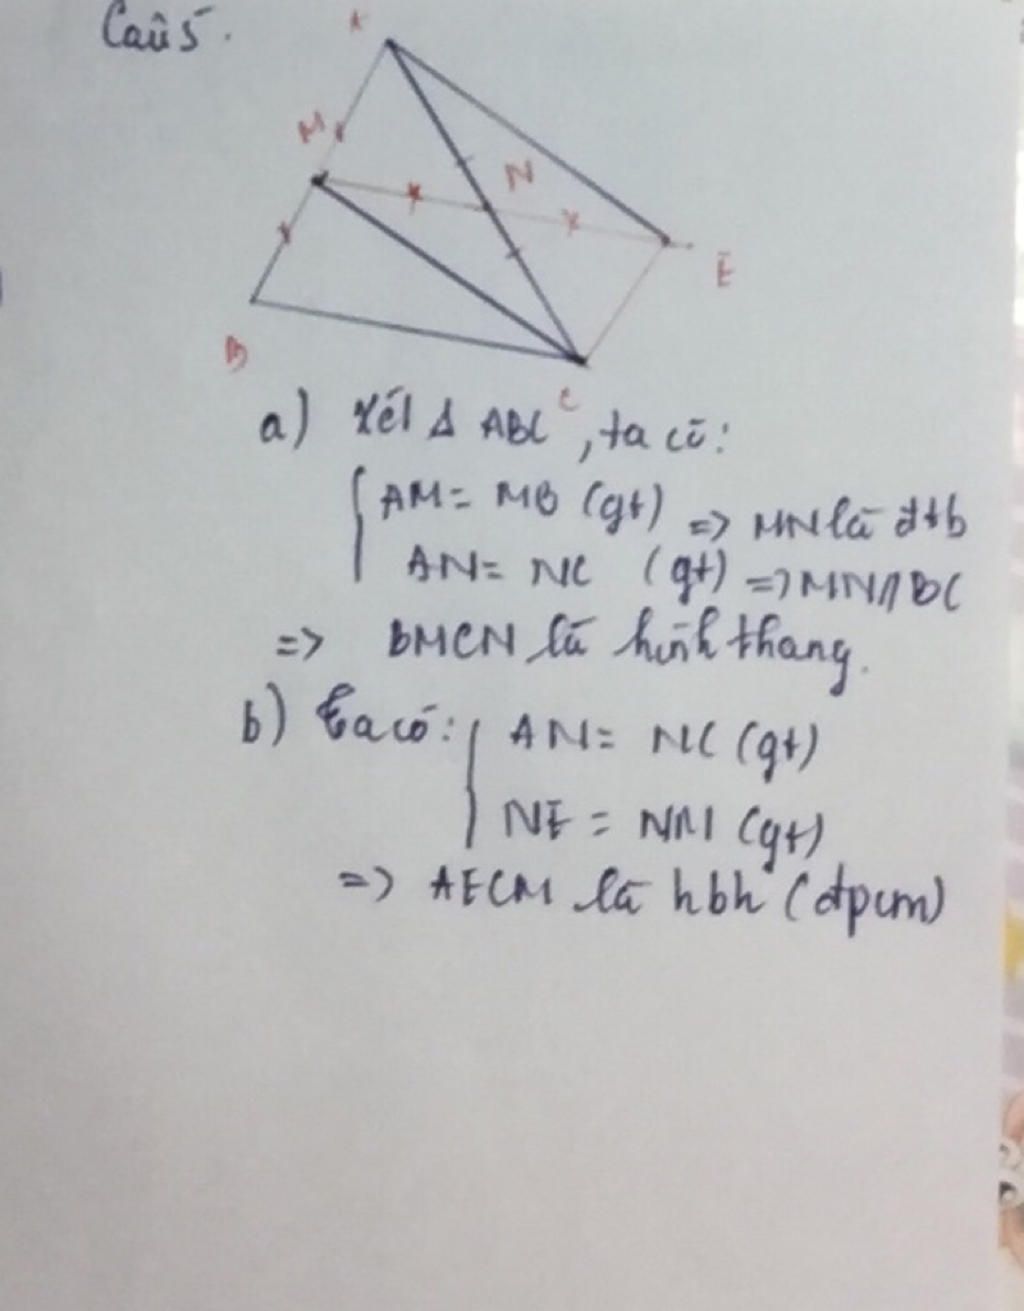 Câu 5.
A
M
N
E
B
C
a) Xét Δ ABC, ta có:
AM = MB (gt) => MN là đtb
AN = NC (gt) => MN // BC
=> BMCN là hình thang.
b) Ta có: AN = NC (gt)
NE = NM (gt)
=> AECM là hbh (đpcm)